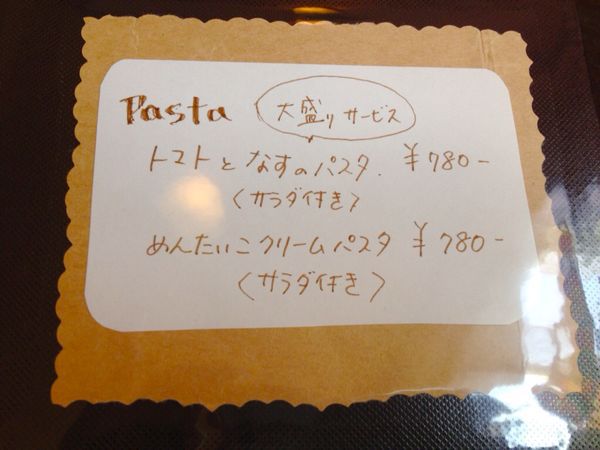 Pasta 大盛りサービス
トマトとなすのパスタ. ¥780-
〈サラダ付き〉
めんたいこクリームパスタ ¥780-
〈サラダ付き〉